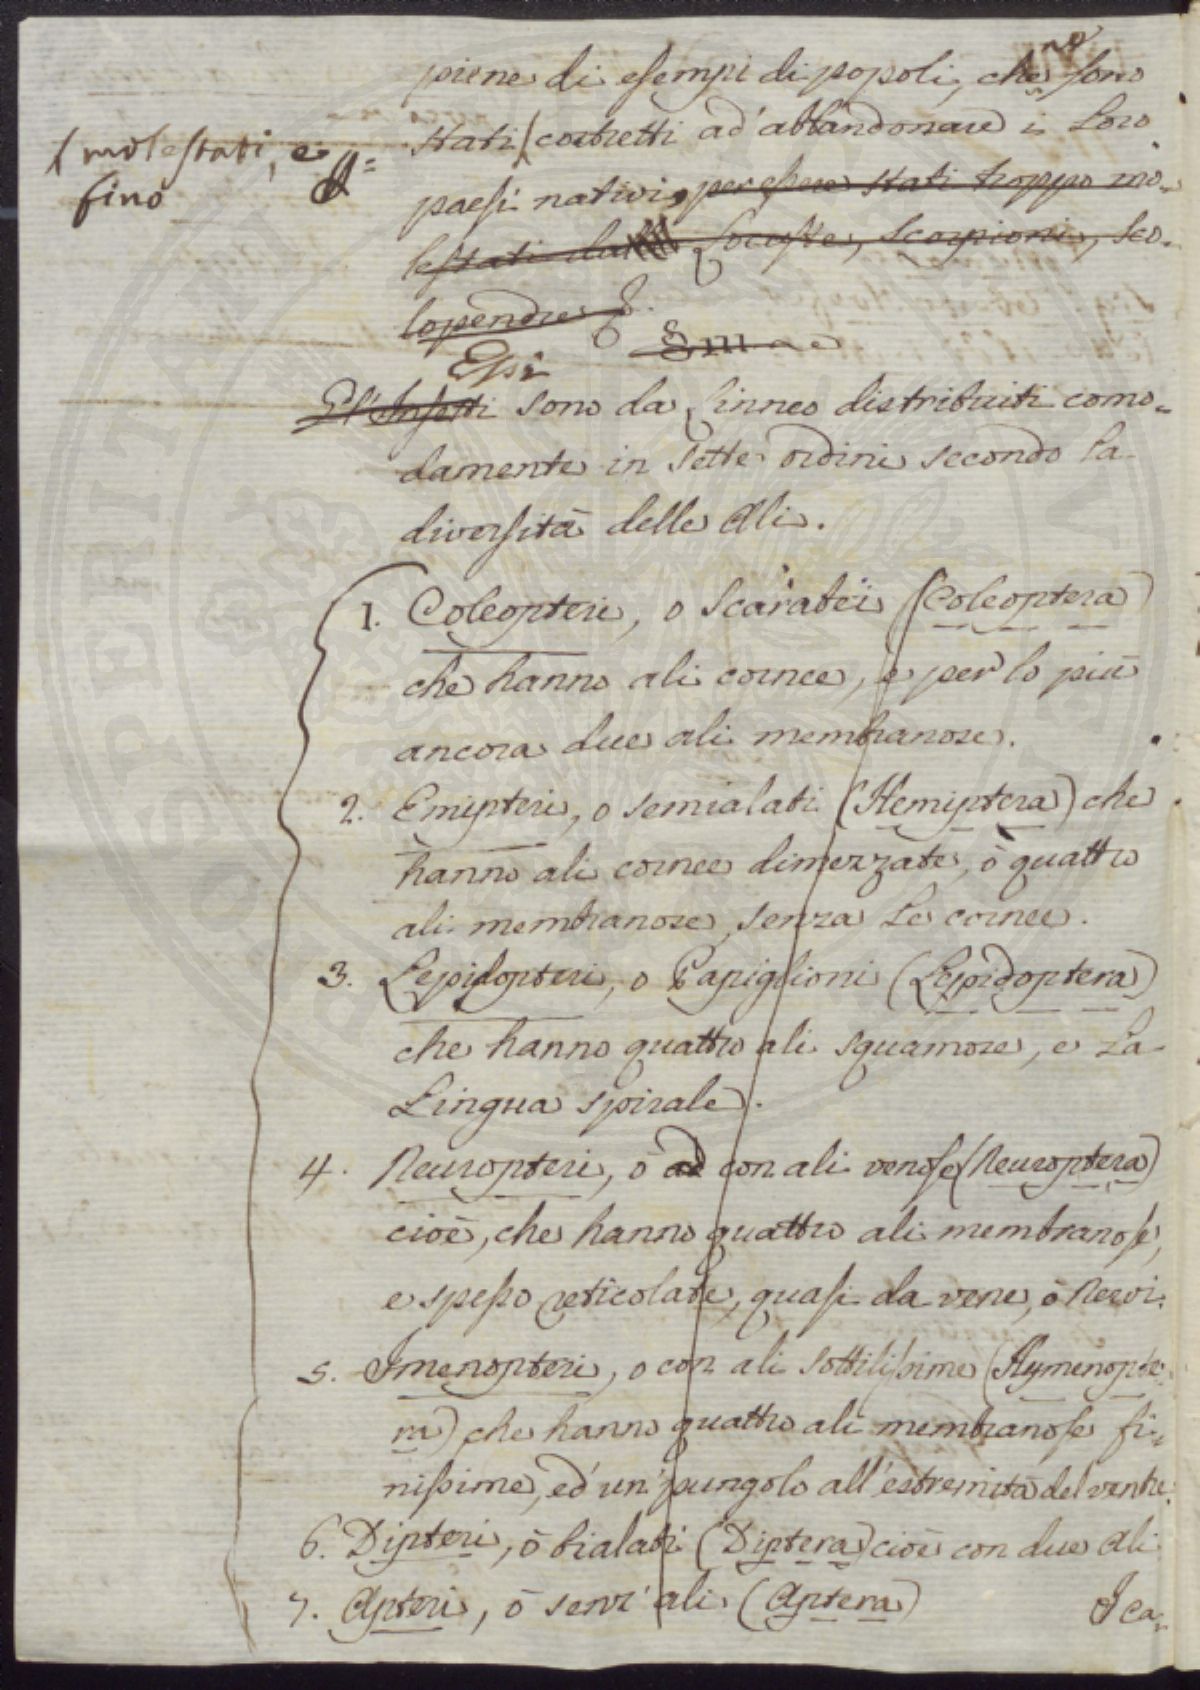 ne
piene di esempi di popoli, che sono
stati costretti ad' abbandonare i Loro
( molestati, e
fino
paesi nativi, per essere stati troppo mo-
lestati da Locuste, Scorpioni, sco-
lopendre
§ III
Essi
Gl'Insetti sono da Linneo distribuiti como-
damente in Sette ordini secondo la
diversità delle Ali.
1. Coleopteri, o Scarabei (Coleoptera)
che hanno ali cornee, e per lo più
ancora due ali membranose.
2. Emipteri, o semialati (Hemiptera) che
hanno ali cornee dimezzate, ò quattro
ali membranose, senza Le cornee.
3. Lepidopteri, o Papiglioni (Lepidoptera)
che hanno quattro ali squamose, e La
Lingua spirale.
4. Neuropteri, ò con ali venose (Neuroptera)
cioè, che hanno quattro ali membranose,
e spesso reticolate, quasi da vene, ò Nervi.
5. Imenopteri, o con ali sottilissime (Hymenopte-
ra) che hanno quattro ali membranose fi-
nissime, ed' un' pungolo all' estremità del ventre.
6. Dipteri, ò bialati (Diptera) cioè con due Ali
7. Apteri, ò senz' ali (Aptera)
I ca-